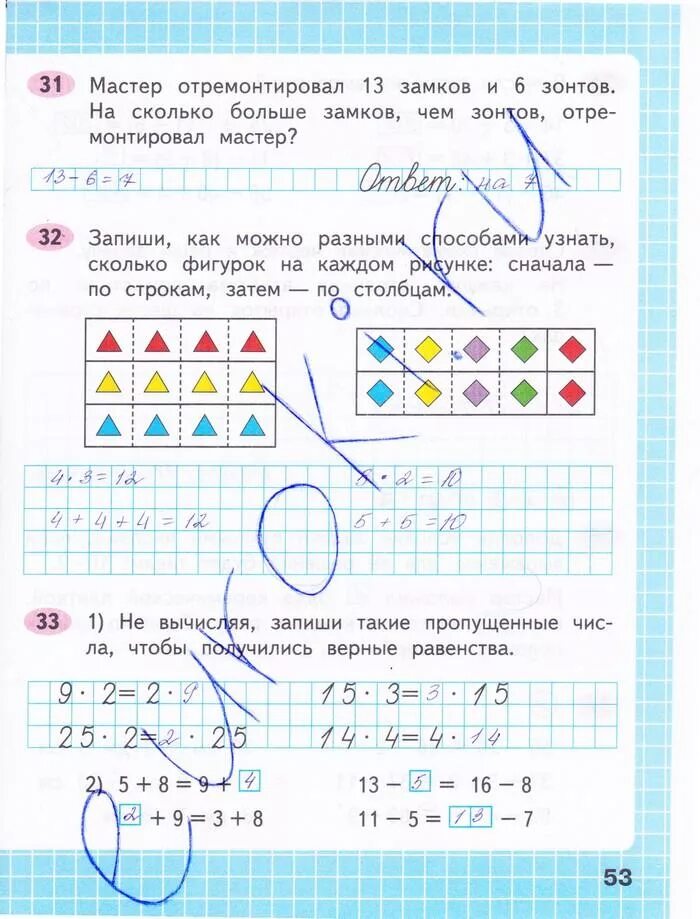 31 Мастер отремонтировал 13 замков и 6 зонтов.
На сколько больше замков, чем зонтов, отре-
монтировал мастер?
13-6=7 Ответ: на 7
32 Запиши, как можно разными способами узнать,
сколько фигурок на каждом рисунке: сначала —
по строкам, затем — по столбцам.
4·3=12 5·2=10
4+4+4=12 5+5=10
33 1) Не вычисляя, запиши такие пропущенные чис-
ла, чтобы получились верные равенства.
9·2=2·9 15·3=3·15
25·2=2·25 14·4=4·14
2) 5+8=9+4 13-5=16-8
2+9=3+8 11-5=13-7
53